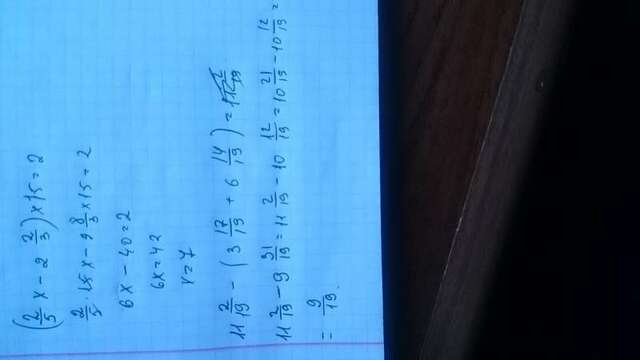 (2/5 x - 2 2/3) × 15 = 2
2/5 · 15x - 8/3 × 15 = 2
6x - 40 = 2
6x = 42
x = 7
11 2/19 - (3 17/19 + 6 14/19) =
11 2/19 - 9 31/19 = 11 2/19 - 10 12/19 = 10 21/19 - 10 12/19 =
= 9/19